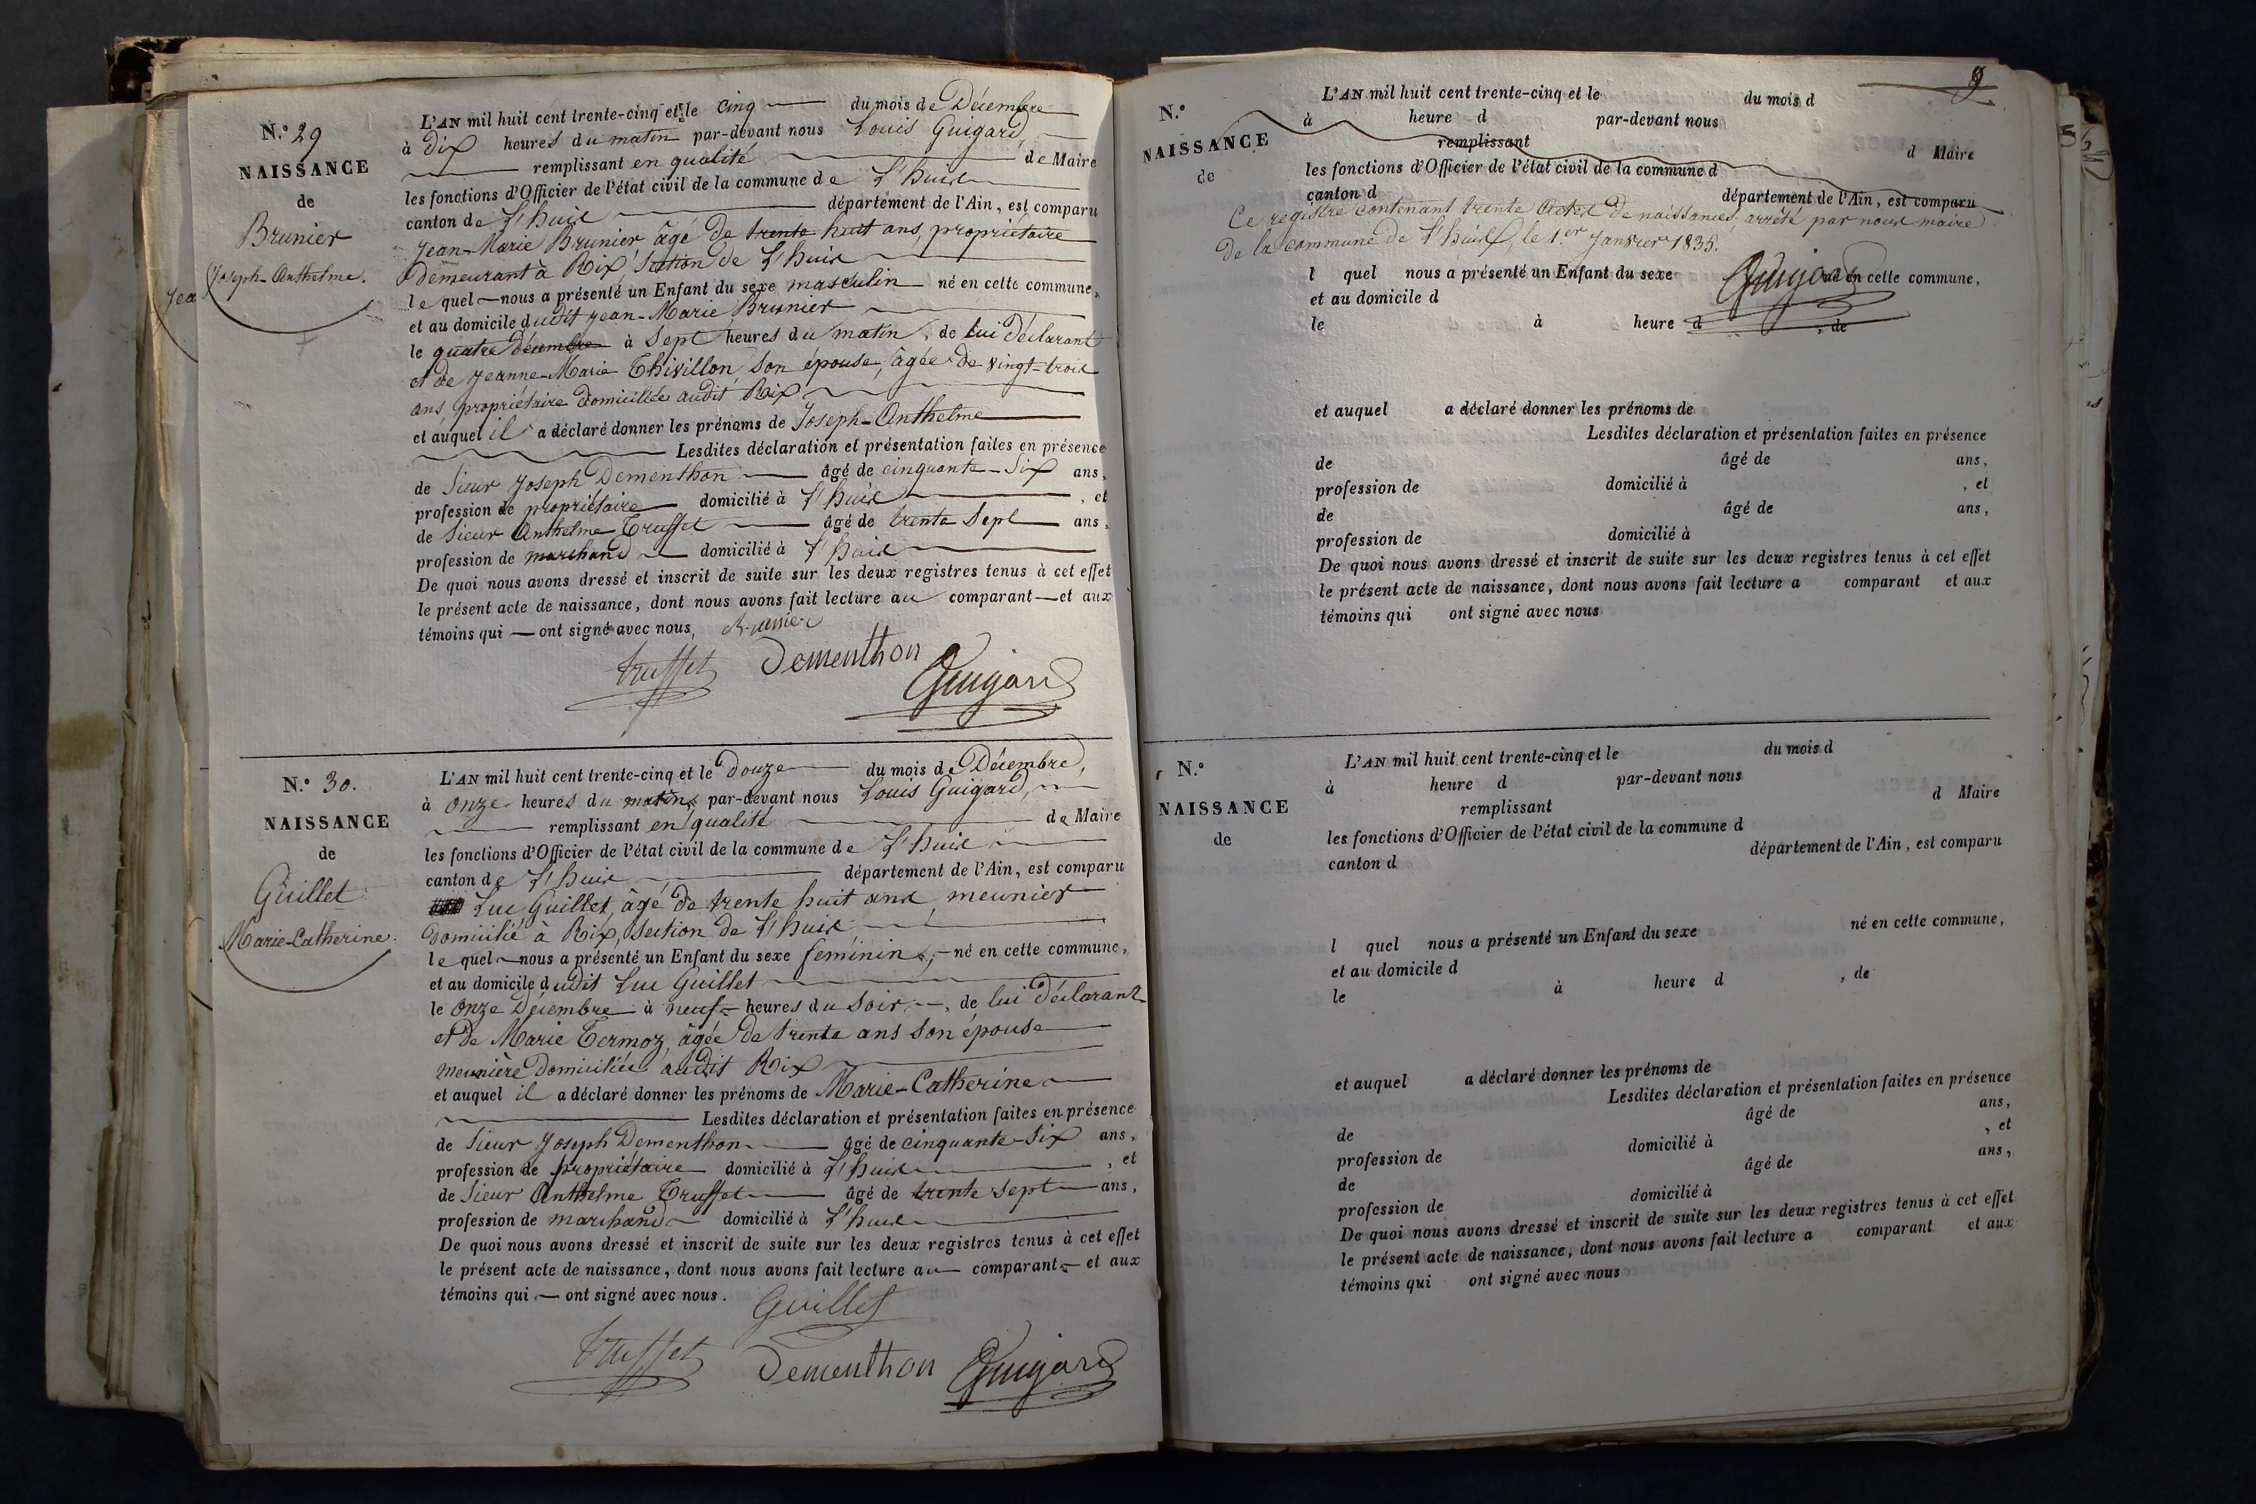 N.° 29
NAISSANCE
de
Brunier
Joseph-Anthelme.
L'AN mil huit cent trente-cinq et le cinq du mois de Décembre
à dix heures du matin par-devant nous Louis Guigard,
remplissant en qualité de Maire
les fonctions d'Officier de l'état civil de la commune de L'huis
canton de L'huis département de l'Ain, est comparu
Jean-Marie Brunier âgé de trente huit ans, propriétaire
demeurant à Rix, Section de L'huis
le quel nous a présenté un Enfant du sexe masculin né en cette commune,
et au domicile dudit Jean-Marie Brunier
le quatre décembre à Sept heures du matin, de lui déclarant
et de Jeanne-Marie Thivillon son épouse, âgée de vingt-trois
ans propriétaire domiciliée audit Rix
et auquel il a déclaré donner les prénoms de Joseph-Anthelme
Lesdites déclaration et présentation faites en présence
de Sieur Joseph Dementhon âgé de cinquante-Six ans,
profession de propriétaire domicilié à L'huis, et
de Sieur Anthelme Truffet âgé de trente Sept ans,
profession de marchand domicilié à L'huis
De quoi nous avons dressé et inscrit de suite sur les deux registres tenus à cet effet
le présent acte de naissance, dont nous avons fait lecture au comparant et aux
témoins qui ont signé avec nous, Brunier
Truffet Dementhon Guigard
N.° 30.
NAISSANCE
de
Guillet
Marie-Catherine.
L'AN mil huit cent trente-cinq et le douze du mois de Décembre,
à onze heures du matin, par-devant nous Louis Guigard,
remplissant en qualité de Maire
les fonctions d'Officier de l'état civil de la commune de L'huis
canton de L'huis département de l'Ain, est comparu
Luc Guillet, âgé de trente huit ans, meunier
domicilié à Rix, Section de L'huis
le quel nous a présenté un Enfant du sexe féminin, né en cette commune,
et au domicile dudit Luc Guillet
le onze Décembre à neuf heures du Soir, de lui déclarant
et de Marie Termoz, âgée de trente ans son épouse
meunière domiciliée audit Rix
et auquel il a déclaré donner les prénoms de Marie-Catherine
Lesdites déclaration et présentation faites en présence
de Sieur Joseph Dementhon âgé de cinquante-Six ans,
profession de propriétaire domicilié à L'huis, et
de Sieur Anthelme Truffet âgé de trente Sept ans,
profession de marchand domicilié à L'huis
De quoi nous avons dressé et inscrit de suite sur les deux registres tenus à cet effet
le présent acte de naissance, dont nous avons fait lecture au comparant et aux
témoins qui ont signé avec nous. Guillet
Truffet Dementhon Guigard
9
N.°
NAISSANCE
de
L'AN mil huit cent trente-cinq et le du mois d
à heure d par-devant nous
remplissant d Maire
les fonctions d'Officier de l'état civil de la commune d
canton d département de l'Ain, est comparu
Ce registre contenant trente actes de naissances, arrêté par nous maire
de la commune de L'huis, le 1.er Janvier 1835.
l quel nous a présenté un Enfant du sexe né en cette commune,
Guigard
et au domicile d
le à heure d , de
et auquel a déclaré donner les prénoms de
Lesdites déclaration et présentation faites en présence
de âgé de ans,
profession de domicilié à , et
de âgé de ans,
profession de domicilié à
De quoi nous avons dressé et inscrit de suite sur les deux registres tenus à cet effet
le présent acte de naissance, dont nous avons fait lecture a comparant et aux
témoins qui ont signé avec nous
N.°
NAISSANCE
de
L'AN mil huit cent trente-cinq et le du mois d
à heure d par-devant nous
remplissant d Maire
les fonctions d'Officier de l'état civil de la commune d
canton d département de l'Ain, est comparu
l quel nous a présenté un Enfant du sexe né en cette commune,
et au domicile d
le à heure d , de
et auquel a déclaré donner les prénoms de
Lesdites déclaration et présentation faites en présence
de âgé de ans,
profession de domicilié à , et
de âgé de ans,
profession de domicilié à
De quoi nous avons dressé et inscrit de suite sur les deux registres tenus à cet effet
le présent acte de naissance, dont nous avons fait lecture a comparant et aux
témoins qui ont signé avec nous